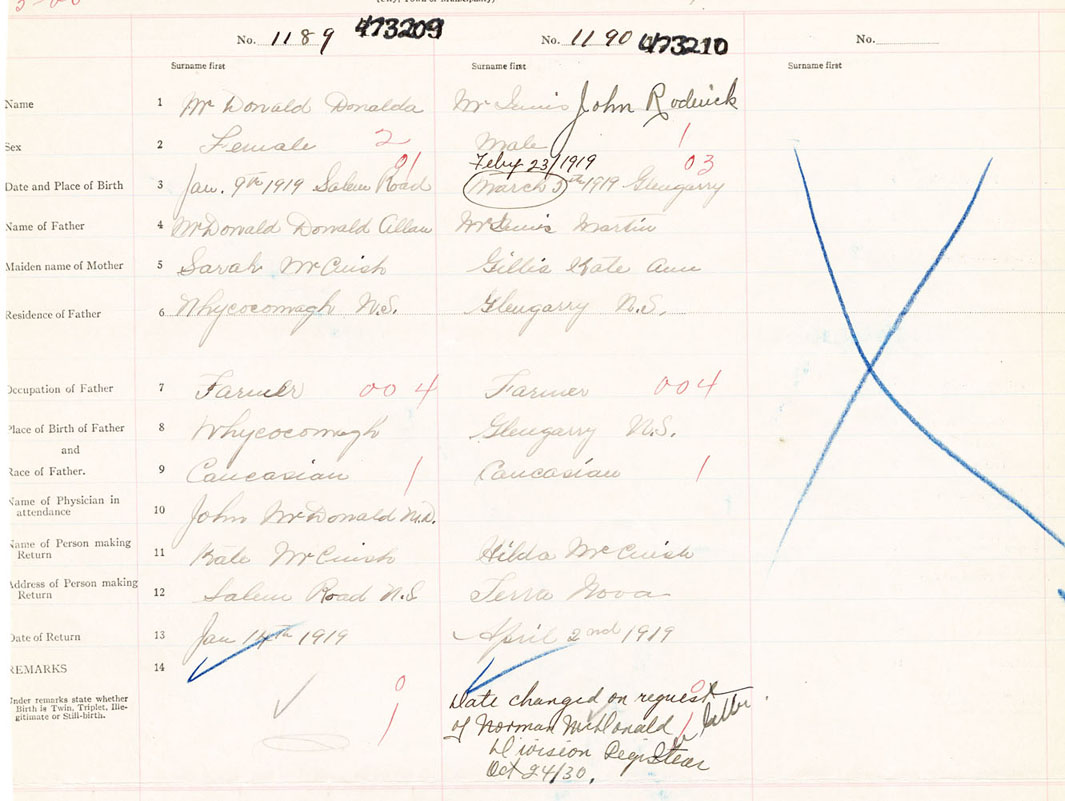 (City, Town or Municipality)
No. 1189 473209 No. 1190 473210 No.
Surname first Surname first Surname first
Name 1 McDonald Donalda McInnis John Roderick
Sex 2 Female 2 Male 1
Feby 23/1919
Date and Place of Birth 3 Jan. 9th 1919 Salem Road 01 March 5th 1919 Glengarry 03
Name of Father 4 McDonald Donald Allan McInnis Martin
Maiden name of Mother 5 Sarah McCuish Gillis Kate Ann
Residence of Father 6 Whycocomagh N.S. Glengarry N.S.
Occupation of Father 7 Farmer 004 Farmer 004
Place of Birth of Father 8 Whycocomagh Glengarry N.S.
and
Race of Father. 9 Caucasian 1 Caucasian 1
Name of Physician in
attendance 10 John McDonald M.D.
Name of Person making
Return 11 Kate McCuish Hilda McCuish
Address of Person making
Return 12 Salem Road N.S Terra Nova
Date of Return 13 Jan 14th 1919 April 2nd 1919
REMARKS 14
Under remarks state whether
Birth is Twin, Triplet, Ille-
gitimate or Still-birth.
0
1
0
1
Date changed on request
of Norman McDonald
Division Registrar
Oct 24/30.